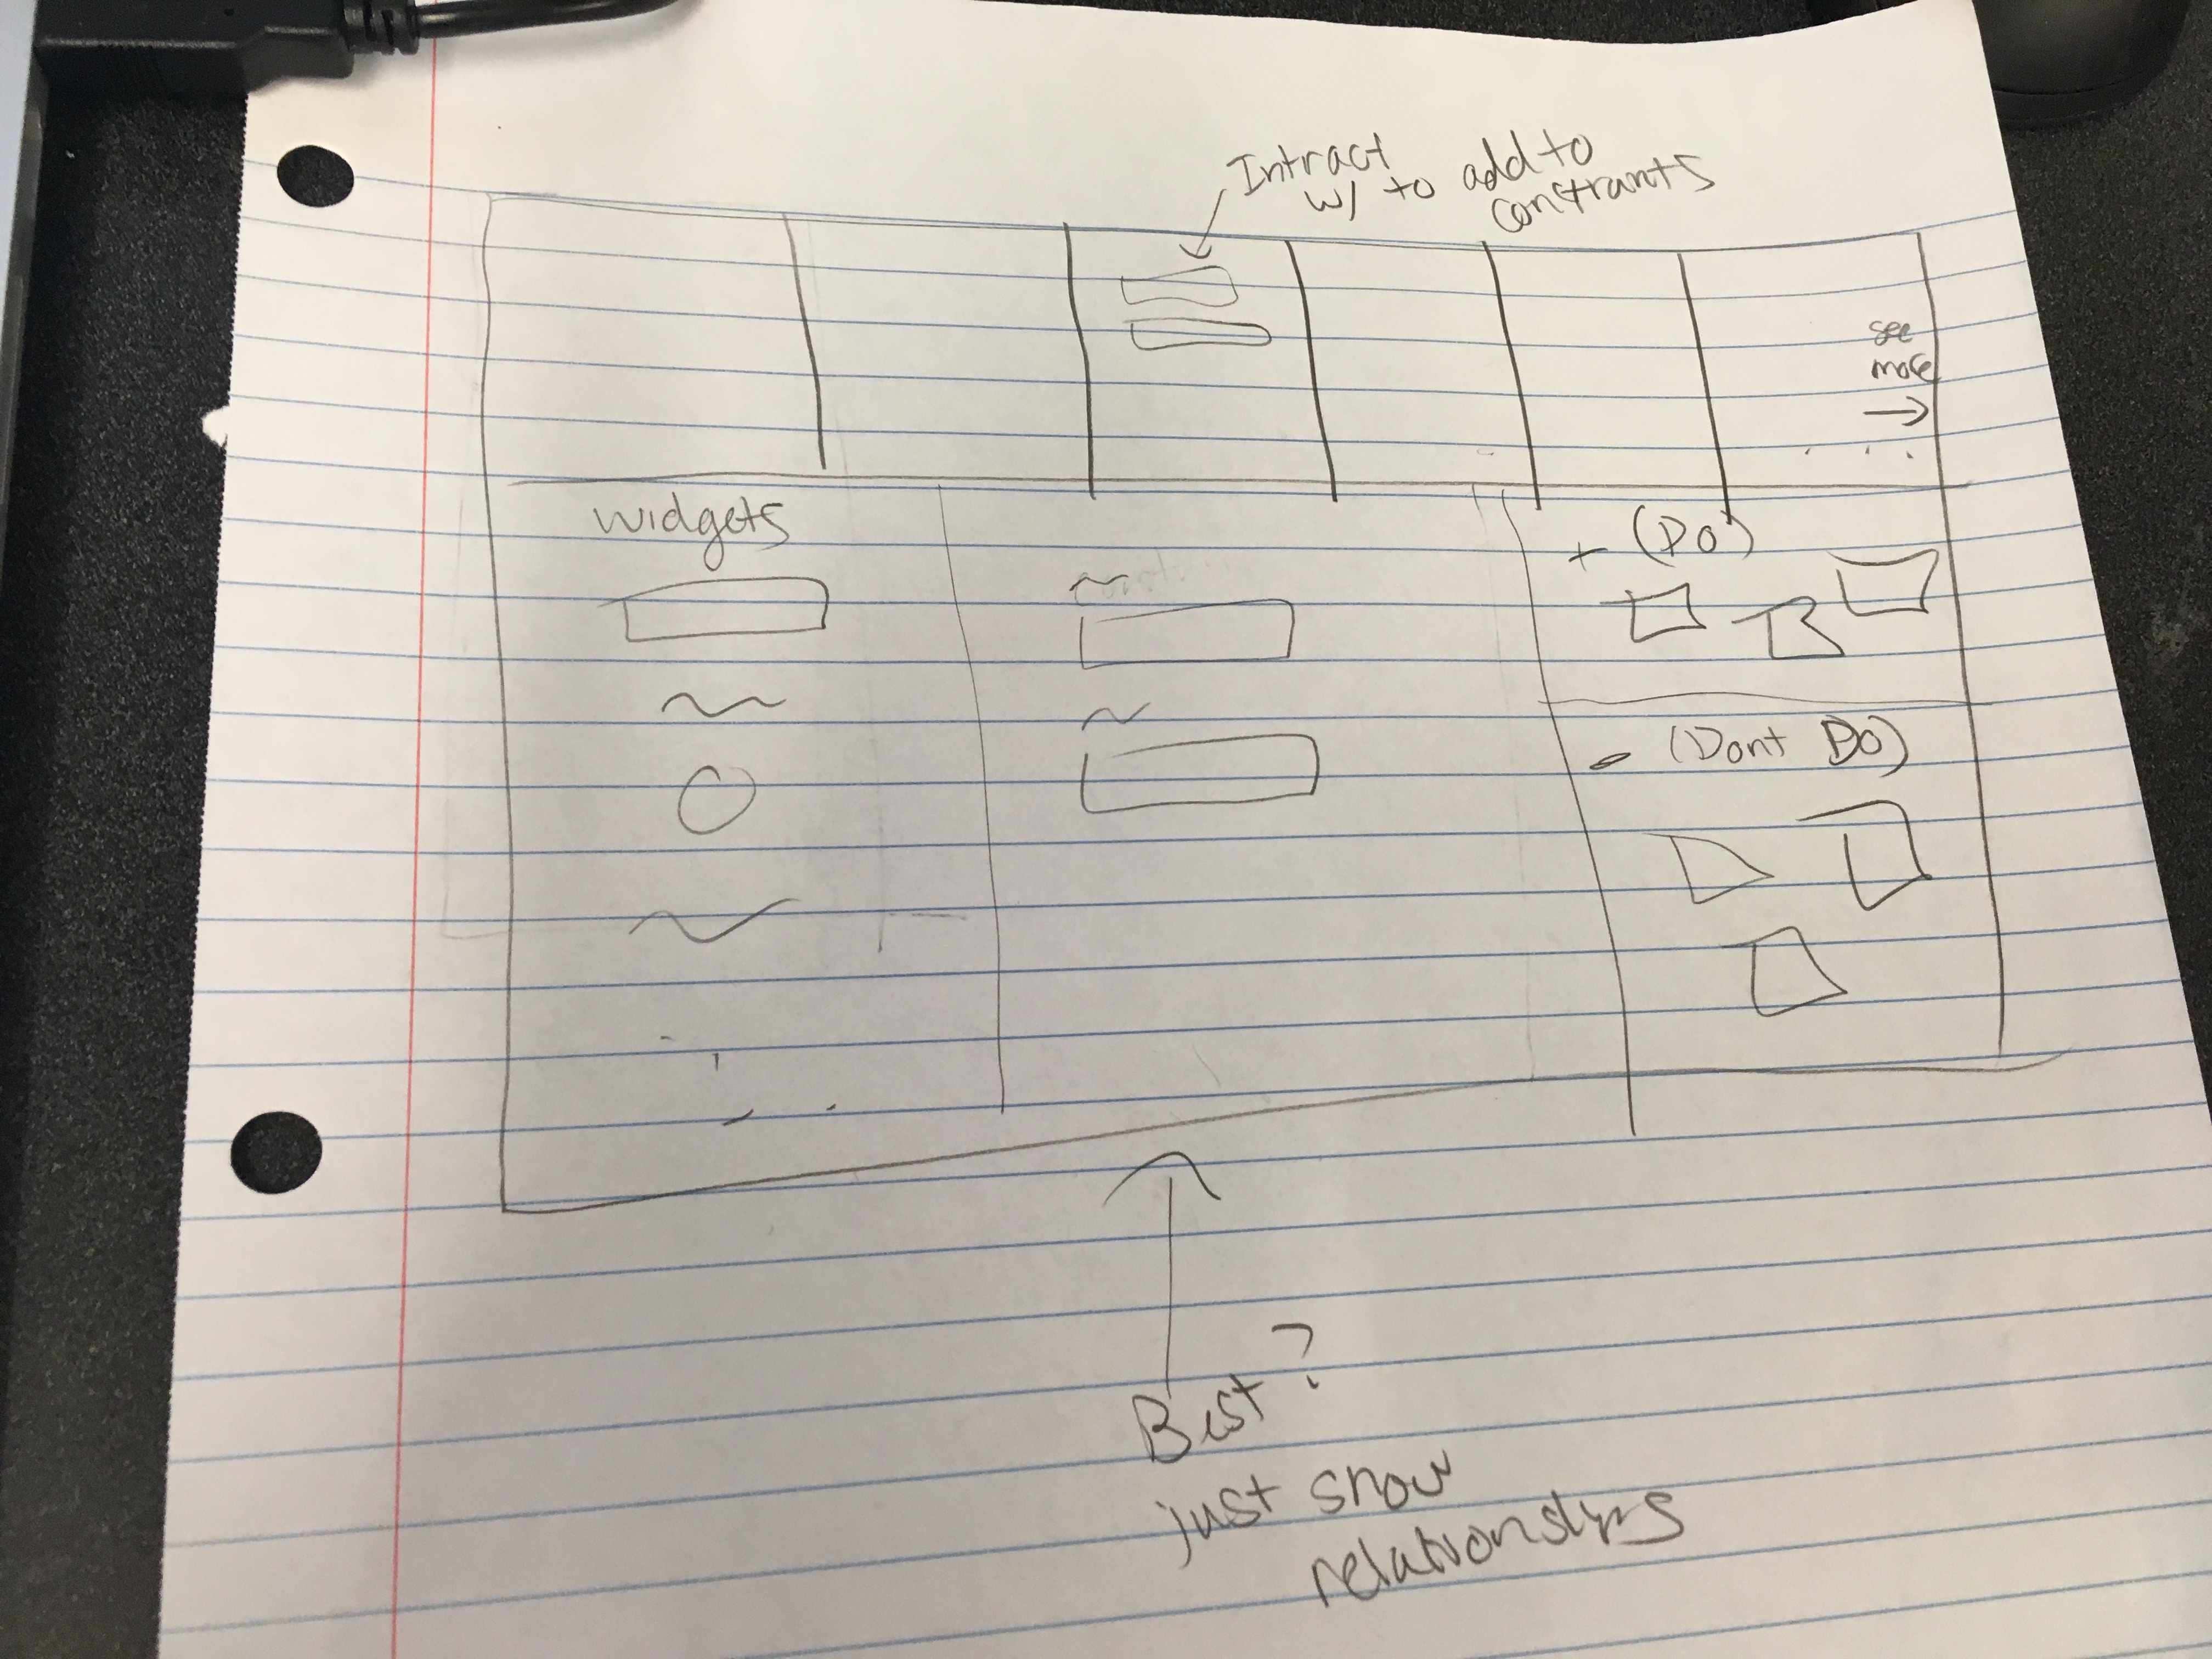 Intract
w/ to add to
constrants
see
more
widgets
+ (Do)
- (Dont Do)
Best?
just show
relationships